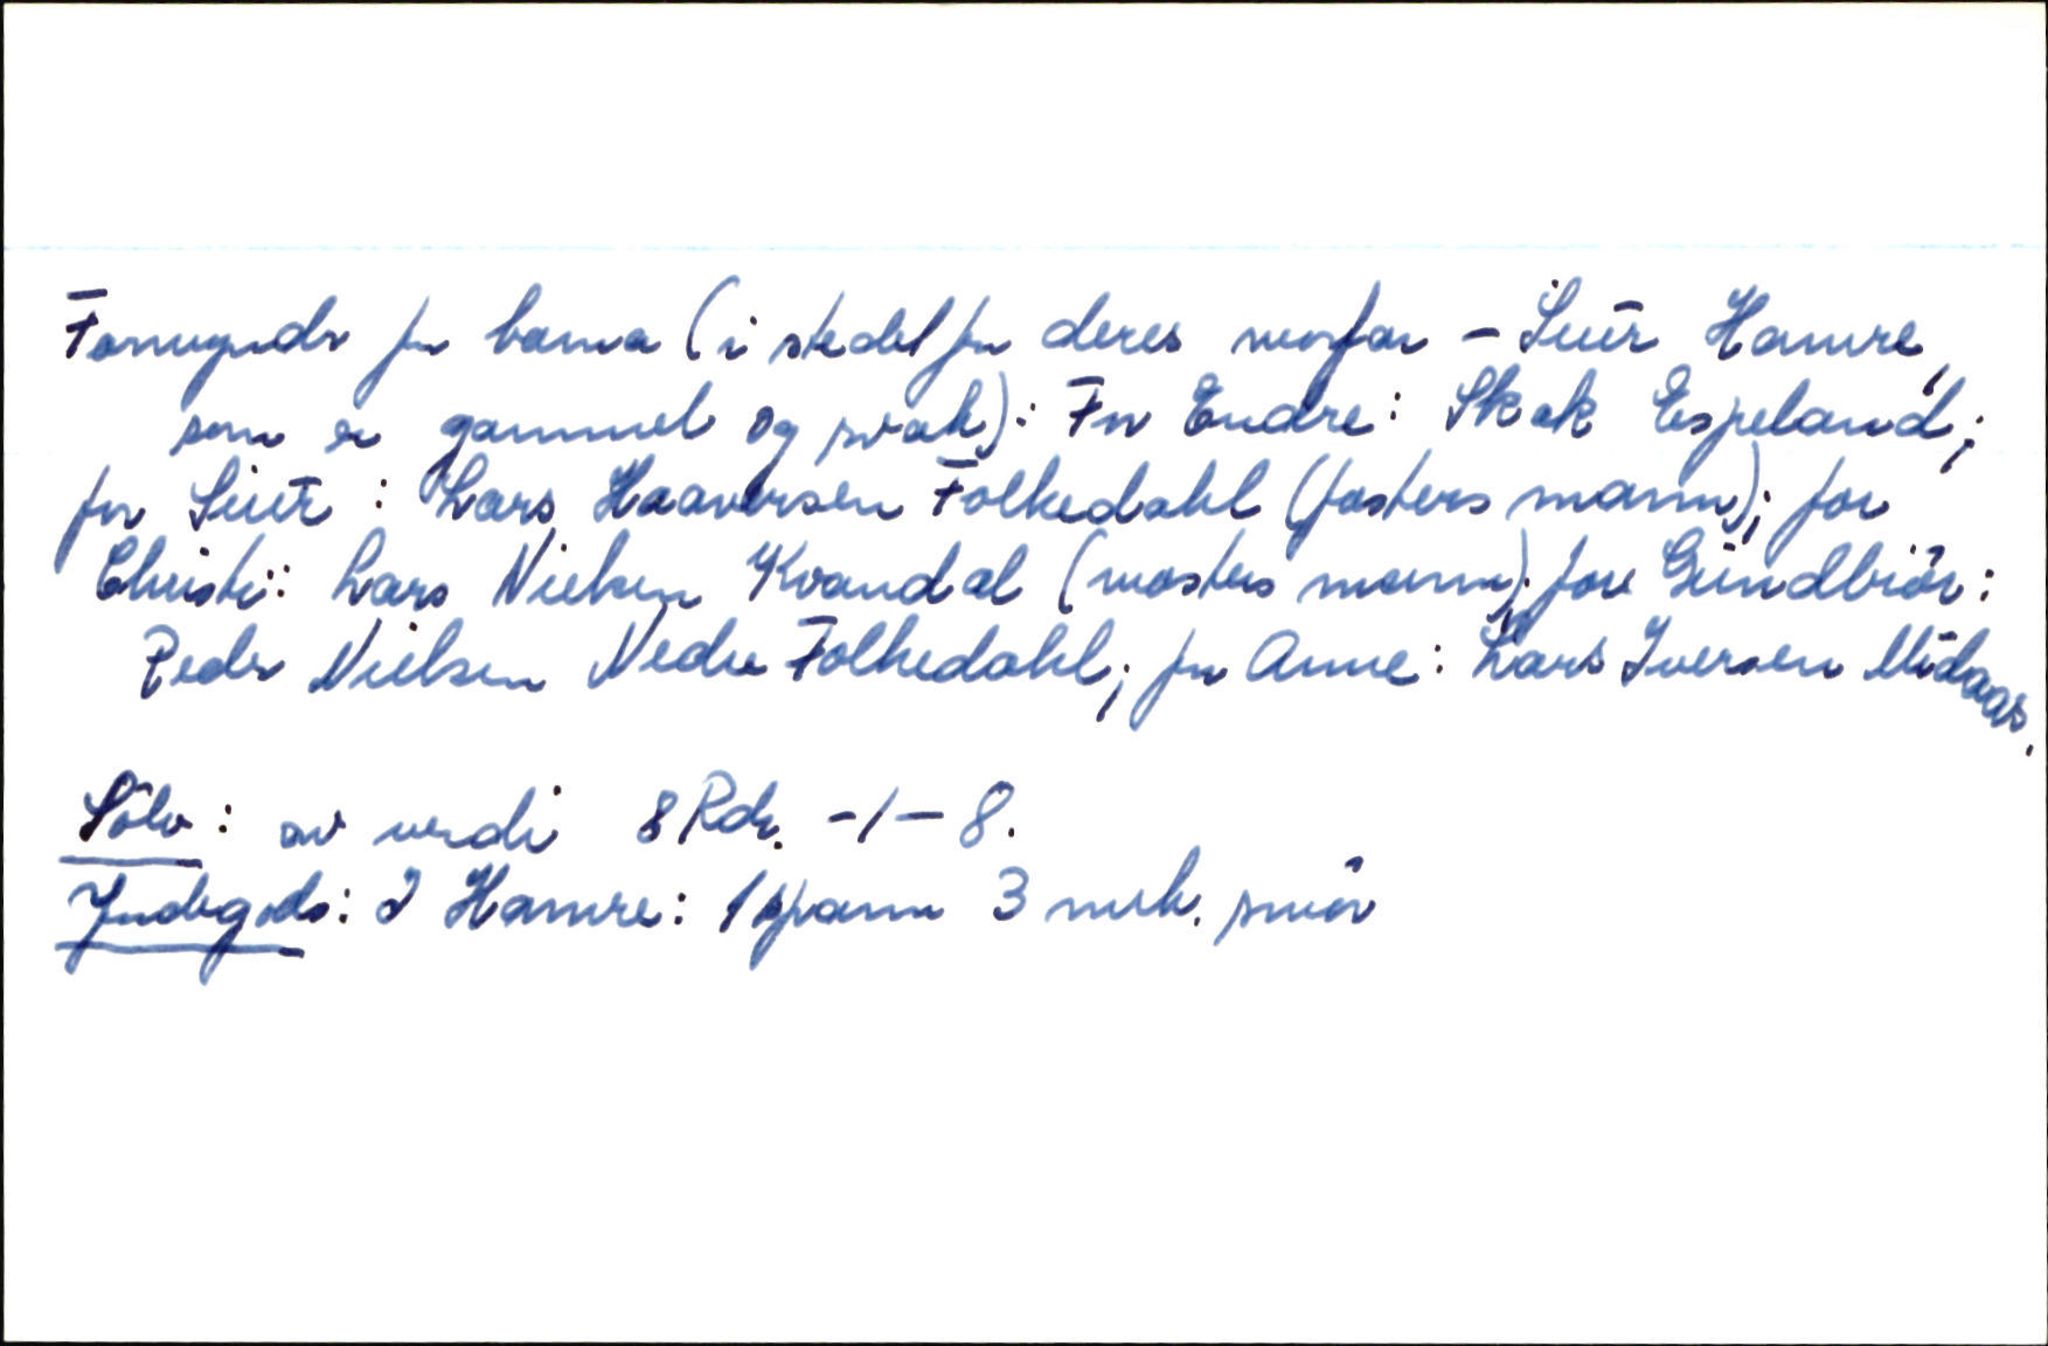 Formynder for barna (i stedet for deres morfar - Siur Hamre,
som er gammel og svak): For Endre: Skak Espeland;
for Siur: Lars Haaversen Folkedahl (fasters mann); for
Christi: Lars Nielsen Kvandal (mosters mann); for Gundbiör:
Peder Nielsen Nedre Folkedahl; for Anne: Lars Iversen Midaas.
Sölv: av verdi 8 Rdr. -1-8.
Jordegods: I Hamre: 1 spann 3 mrk. smör